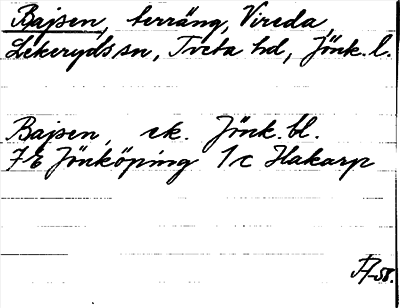 Bajsen, terräng, Vireda,
Lekeryds sn, Tveta hd, Jönk. l.
Bajsen, ek. Jönk. bl.
7 E Jönköping 1 c Hakarp